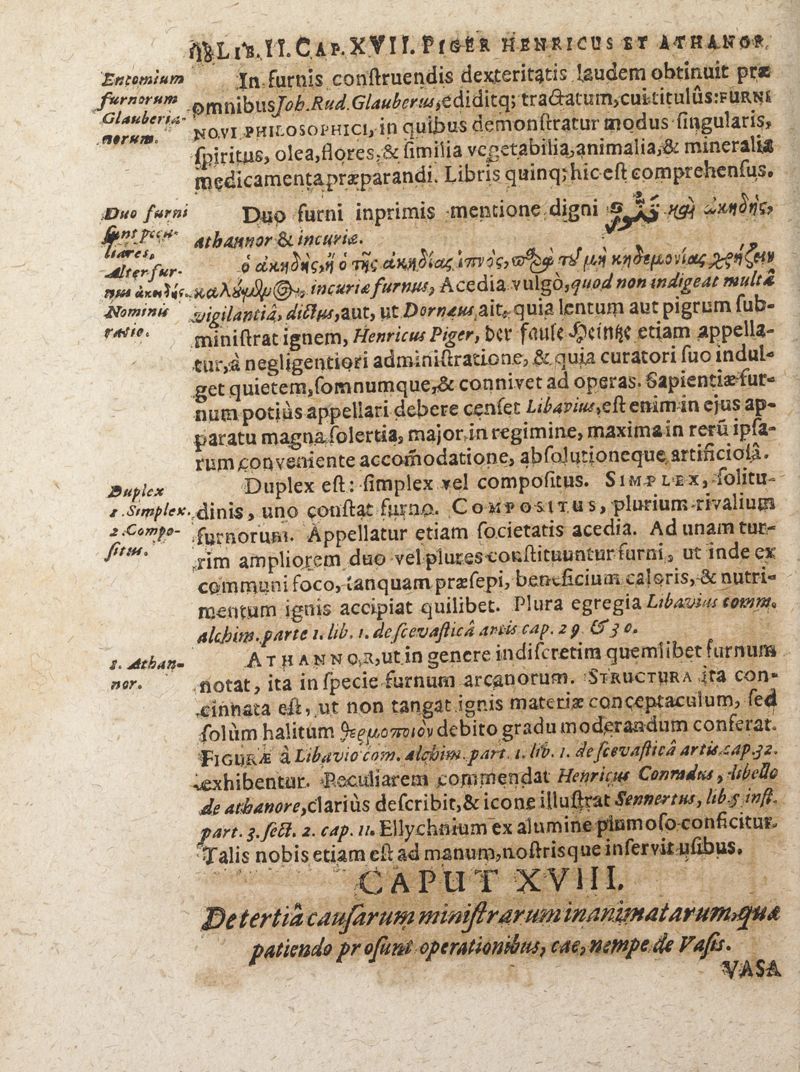 LIB. II. CAP. XVII. PIGER HENRICUS ET ATHANOR.
Encomium
furnorum
Glauberia-
norum.
In furnis conſtruendis dexteritatis laudem obtinuit præ
omnibus Joh. Rud. Glauberus, ediditq; tractatum, cui titulus: FURNI
NOVI PHILOSOPHICI, in quibus demonſtratur modus ſingularis,
ſpiritus, olea, flores, & ſimilia vegetabilia, animalia, & mineralia
medicamenta præparandi. Libris quinq; hic eſt comprehenſus.
Duo furni
ſunt pecu-
liares.
Alter fur-
nus ἀκηδὴς.
Nominis
ratio.
Duo furni inprimis mentione digni καὶ ἀκηδὴς,
athannor & incuriæ.
ὁ ἀκηδὴς, ἢ ὁ τῆς ἀκηδίας ἱπνὸς, τῦ μὴ κηδεμονίας χρῄζειν
καλέμεν, incuriæ furnus, Acedia vulgò, quod non indigeat multâ
vigilantiâ, dictus, aut, ut Dornæus ait, quia lentum aut pigrum ſub-
miniſtrat ignem, Henricus Piger, der faule Heintze etiam appella-
tur, à negligentiori adminiſtratione, & quia curatori ſuo indul-
get quietem, ſomnumque, & connivet ad operas. Sapientiæ fur-
num potiùs appellari debere cenſet Libavius, eſt enim in ejus ap-
paratu magna ſolertia, major in regimine, maxima in rerū ipſa-
rum conveniente accom̄odatione, abſolutioneque artificioſâ.
Duplex
1. Simplex.
2. Compo-
ſitus.
Duplex eſt: ſimplex vel compoſitus. SIMPLEX, ſolitu-
dinis, uno conſtat furno. COMPOSITUS, plurium rivalium
furnorum. Appellatur etiam ſocietatis acedia. Ad unam tur-
rim ampliorem duo vel plures conſtituuntur furni, ut inde ex
communi foco, tanquam præſepi, beneficium caloris, & nutri-
mentum ignis accipiat quilibet. Plura egregia Libavius comm.
alchim. parte 1. lib. 1. de ſcevaſticâ artis cap. 29 & 30.
2. Athan-
nor.
ATHANNOR, ut in genere indiſcretim quemlibet furnum
notat, ita in ſpecie furnum arcanorum. STRUCTURA ita con-
cinnata eſt, ut non tangat ignis materiæ conceptaculum, ſed
ſolùm halitum θερμοποιὸν debito gradu moderandum conferat.
FIGURÆ à Libavio com. alchim. part. 1. lib. 1. de ſcevaſticâ artis cap. 32.
exhibentur. Peculiarem commendat Henricus Conradus, libello
de athanore, clariùs deſcribit, & icone illuſtrat Sennertus, lib. 5 inſt.
part. 3. ſect. 2. cap. 11. Ellychnium ex alumine plumoſo conficitur.
Talis nobis etiam eſt ad manum, noſtrisque inſervit uſibus.
CAPUT XVIII.
De tertiâ cauſarum miniſtrarum inanimatarum, quæ
patiendo proſunt operationibus, eae, nempe de Vaſis.
VASA